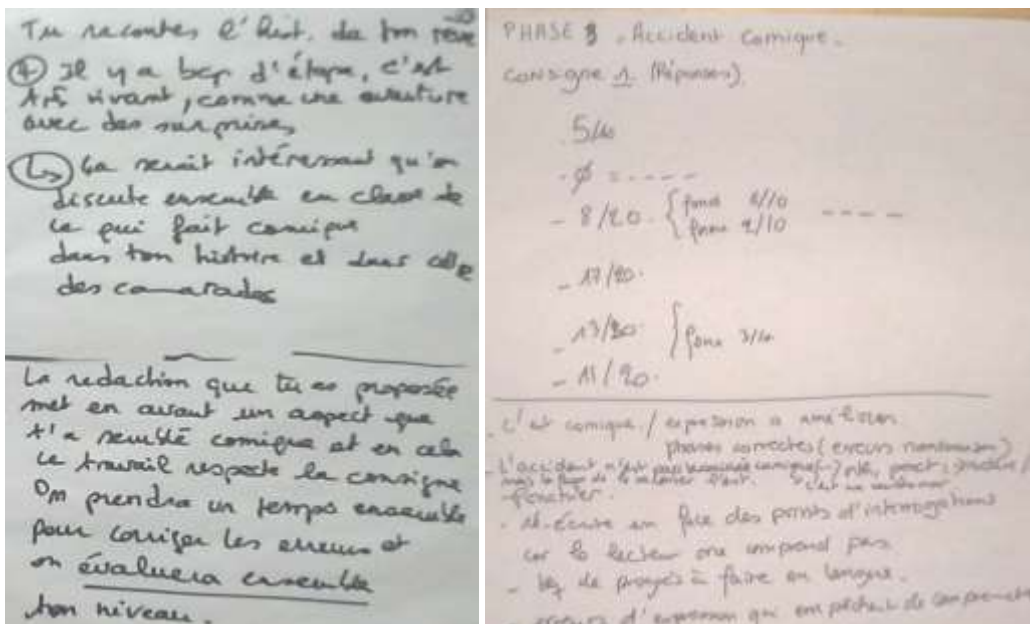 Tu racontes l'hist. de ton rêve
+ Il y a bcp d'étape, c'est
très vivant, comme une aventure
avec des surprises
↳ ça serait intéressant qu'on
discute ensemble en classe de
ce qui fait comique
dans ton histoire et dans celle
des camarades
La rédaction que tu as proposée
met en avant un aspect que
t'a semblé comique et en cela
le travail respecte la consigne
On prendra un temps ensemble
pour corriger les erreurs et
on évaluera ensemble
ton niveau.
PHASE 3. Accident Comique.
CONSIGNE 1 (Réponses).
5/10
- Ø = - - - -
- 8/20. { fond 6/10 - - - -
forme 2/10
- 17/20.
- 13/20. { forme 3/10
- 11/20.
- C'est comique / expression à améliorer
phrases correctes (erreurs nombreuses)
- L'accident n'est pas
- Ré-écrire en face des points d'interrogations
car le lecteur ne comprend pas
- bcp de progrès à faire en langue.
- erreurs d'expression qui empêchent de comprendre